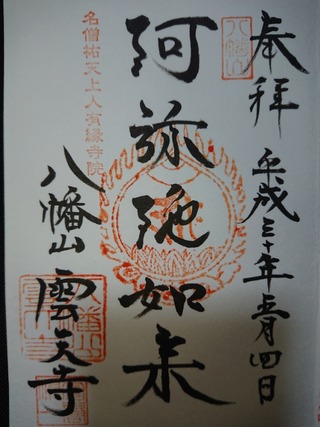 奉拝
平成三十年二月四日
八幡山
阿弥陀如来
名僧祐天上人有縁寺院
八幡山
雲天寺